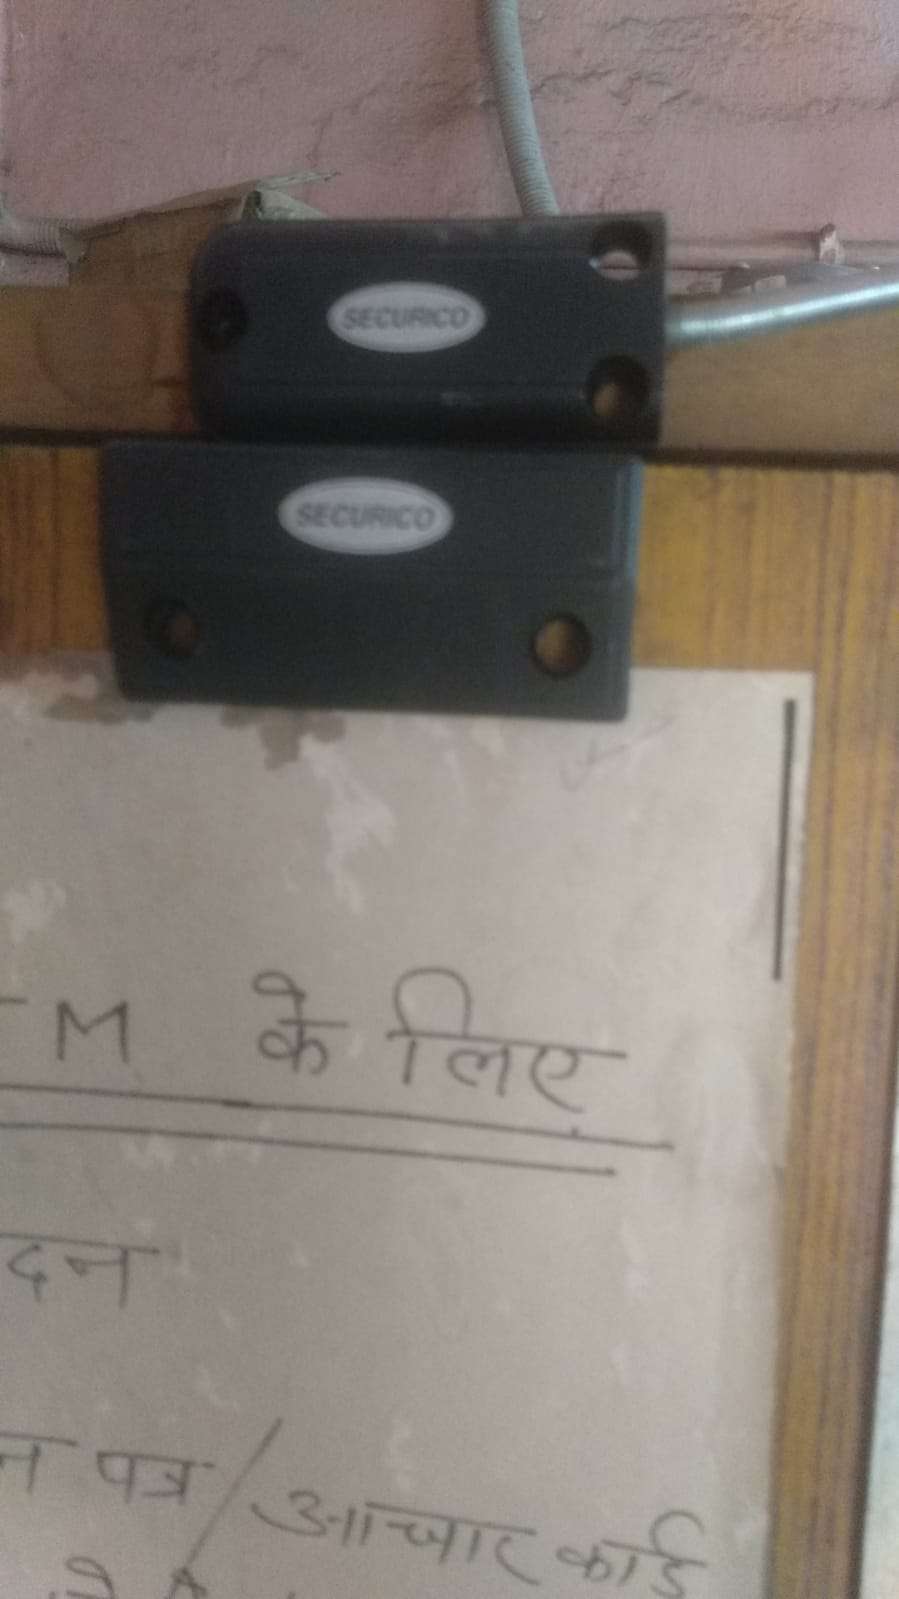 SECURICO
SECURICO
M के लिए
दन
न पत्र / आधार कार्ड